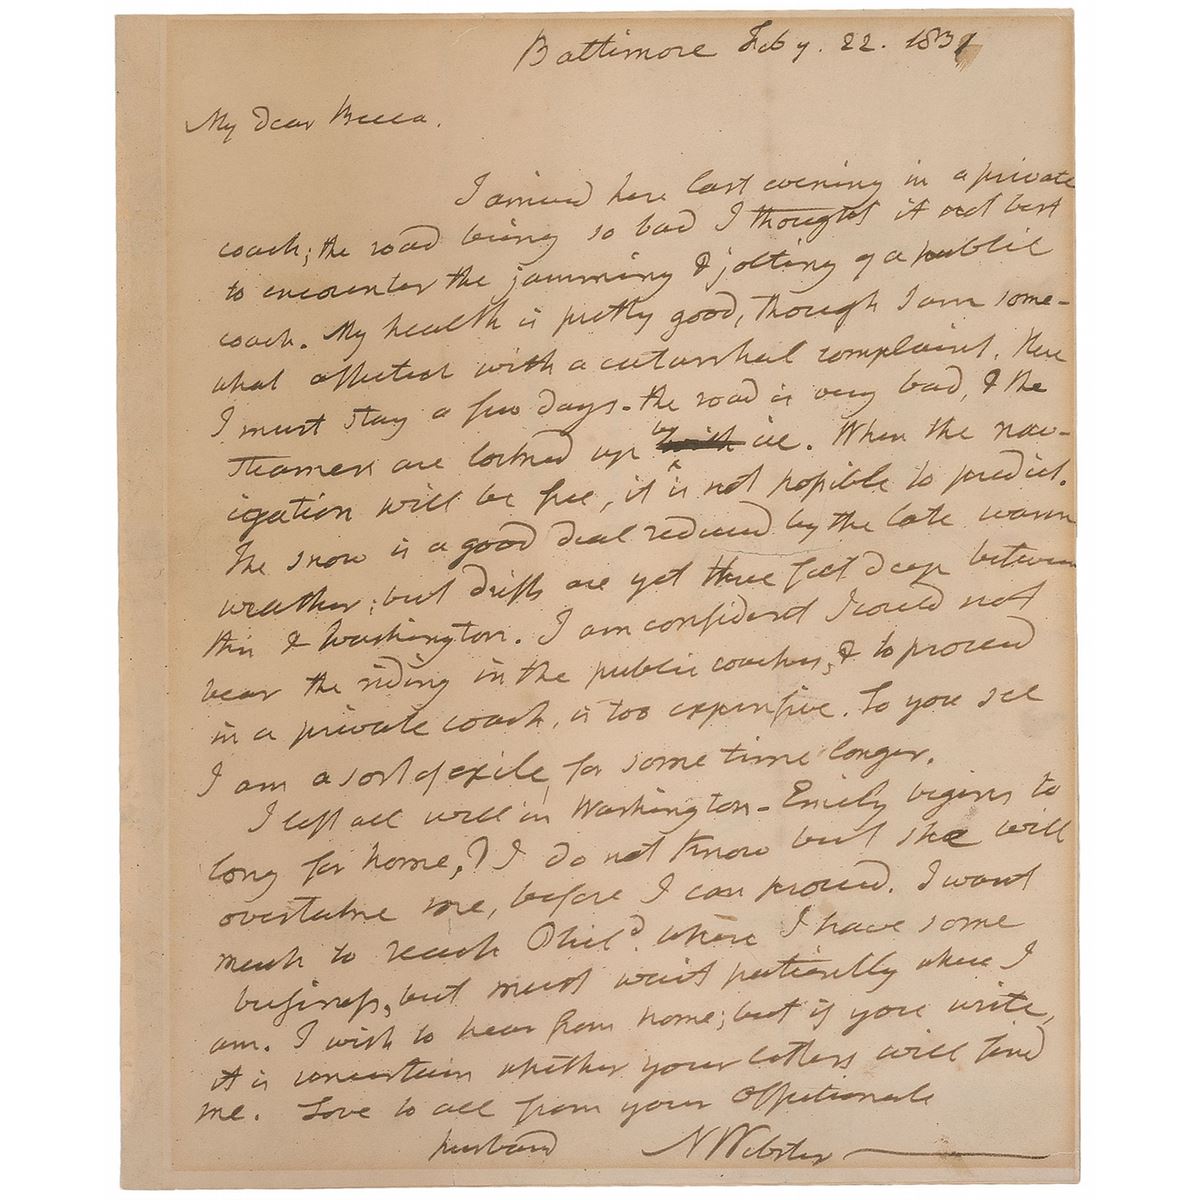 Baltimore Feby. 22. 1831
My Dear Becca.
I arrived here last evening in a private
coach; the road being so bad I thought it not best
to encounter the jamming & jolting of a public
coach. My health is pretty good, though I am some-
what affected with a catarrhal complaint. Here
I must stay a few days - the road is very bad, & the
steamers are locked up by ice. When the nav-
igation will be free, it is not possible to predict.
The snow is a good deal reduced by the late warm
weather; but drifts are yet three feet deep between
this & Washington. I am confident I could not
bear the riding in the public coaches, & to proceed
in a private coach, is too expensive. So you see
I am a sort of exile, for some time longer.
I left all well in Washington - Emily begins to
long for home, & I do not know but she will
overtake me, before I can proceed. I want
much to reach Phild. where I have some
business, but must wait patiently where I
am. I wish to hear from home; but if you write,
it is uncertain whether your letters will find
me. Love to all from your affectionate
husband N Webster